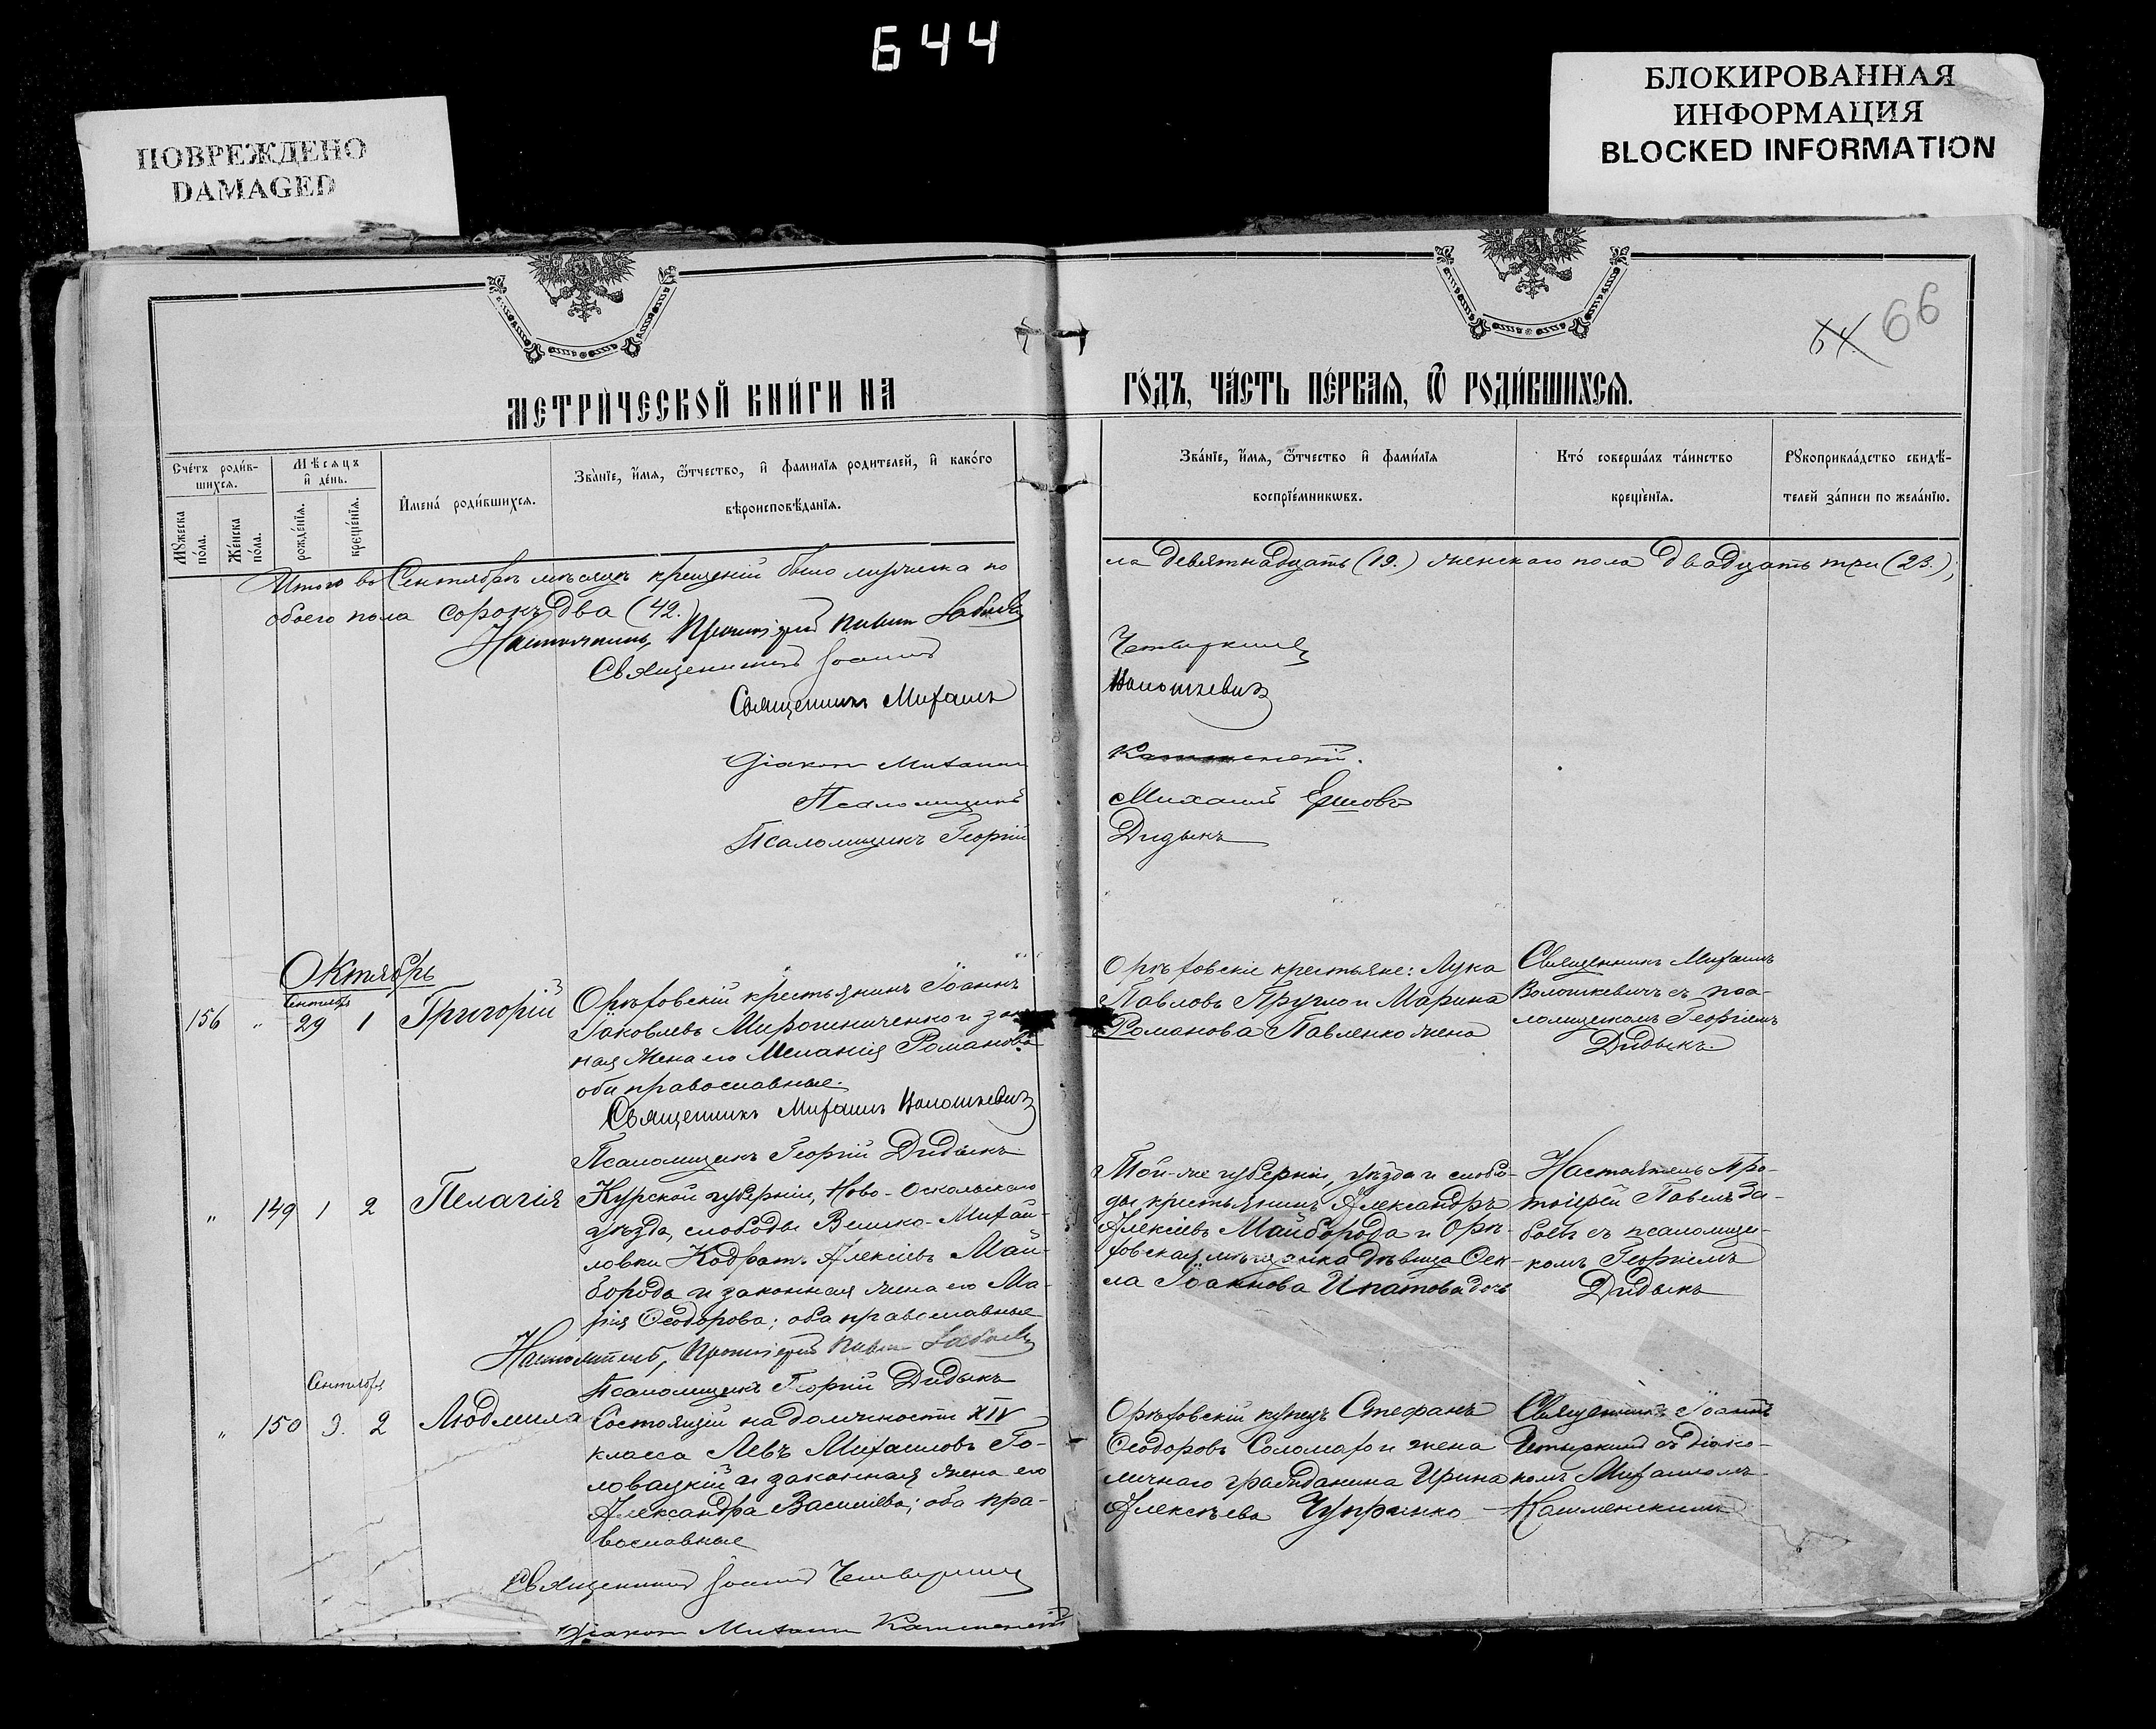 644
ПОВРЕЖДЕНО
DAMAGED
БЛОКИРОВАННАЯ
ИНФОРМАЦИЯ
BLOCKED INFORMATION
64. 66
МЕТРИ́ЧЕСКОЙ КНИ́ГИ НА
ГО́ДЪ, ЧА́СТЬ ПЕ́РВАЯ, Ѿ РОДИ́ВШИХСЯ.
Сче́тъ роди́в-
шихся.
Мѣсяцъ
и҆ де́нь.
Мꙋжеска по́ла.
Же́нска по́ла.
рожде́нїя.
креще́нїя.
И҆мена̀ роди́вшихся.
Зва́нїе, и҆́мя, ѻ҆́тчество, и҆ фами́лїя родителей, и҆ како́го
вѣроисповѣ́данїя.
Зва́нїе, и҆́мя, ѻ҆́тчество и҆ фами́лїя
воспрїе́мникѡвъ.
Кто́ соверша́лъ та́инство
креще́нїя.
Рꙋкоприкла́дство свидѣ́-
телей за́писи по жела́нїю.
Итого въ Сентябрѣ мѣсяцѣ крещеній было мужеска по
обоего пола сорокъ два (42.)
Настоятель, Протоіерей Павелъ Забоевъ
Священникъ Іоаннъ
Священникъ Михаилъ
Діаконъ Михаилъ
Псаломщикъ
Псаломщикъ Георгій
ла девятнадцать (19.) женскаго пола двадцать три (23.),
Четыркинъ
Волошкевичъ
Кашменскій.
Михаилъ Ершовъ
Дидыкъ
Октябрь
156 " Сентября
29 1 Григорій
Орѣховскій крестьянинъ Іоаннъ
Іаковлевъ Мирошниченко и закон
ная жена его Меланія Романова
оба православные.
Священникъ Михаилъ Волошкевичъ
Псаломщикъ Георгій Дидыкъ
Орѣховскіе крестьяне: Лука
Павловъ Пругло и Марина
Романова Павленко жена
Священникъ Михаилъ
Волошкевичъ съ пса-
ломщикомъ Георгіемъ
Дидыкъ.
" 149 1 2 Пелагія
Курской губерніи, Ново-Оскольскаго
уѣзда, слободы Велико-Михай-
ловки Кодратъ Алексіевъ Май-
борода и законная жена его Ма-
рія Ѳеодорова; оба православные
Настоятель, Протоіерей Павелъ Забоевъ
Псаломщикъ Георгій Дидыкъ
Той-же губерніи, уѣзда и слобо-
ды крестьянинъ Александръ
Алексіевъ Майборода и Орѣ-
ховская мѣщанка дѣвица Ѳек-
ла Іоаннова Ипатова дочь
Настоятель Про-
тоіерей Павелъ За-
боевъ съ псаломщи-
комъ Георгіемъ
Дидыкъ
Сентября
" 150 3. 2 Людмила
Состоящій на должности XIV
класса Левъ Михаиловъ Го-
ловацкій и законная жена его
Александра Василіева; оба пра-
вославные
Священникъ Іоаннъ Четыркинъ
Діаконъ Михаилъ Кашменскій
Орѣховскій купецъ Стефанъ
Ѳеодоровъ Соломахо и жена
личнаго гражданина Ирина
Алексѣева Чупринко
Священникъ Іоаннъ
Четыркинъ съ діако-
номъ Михаиломъ
Кашменскимъ